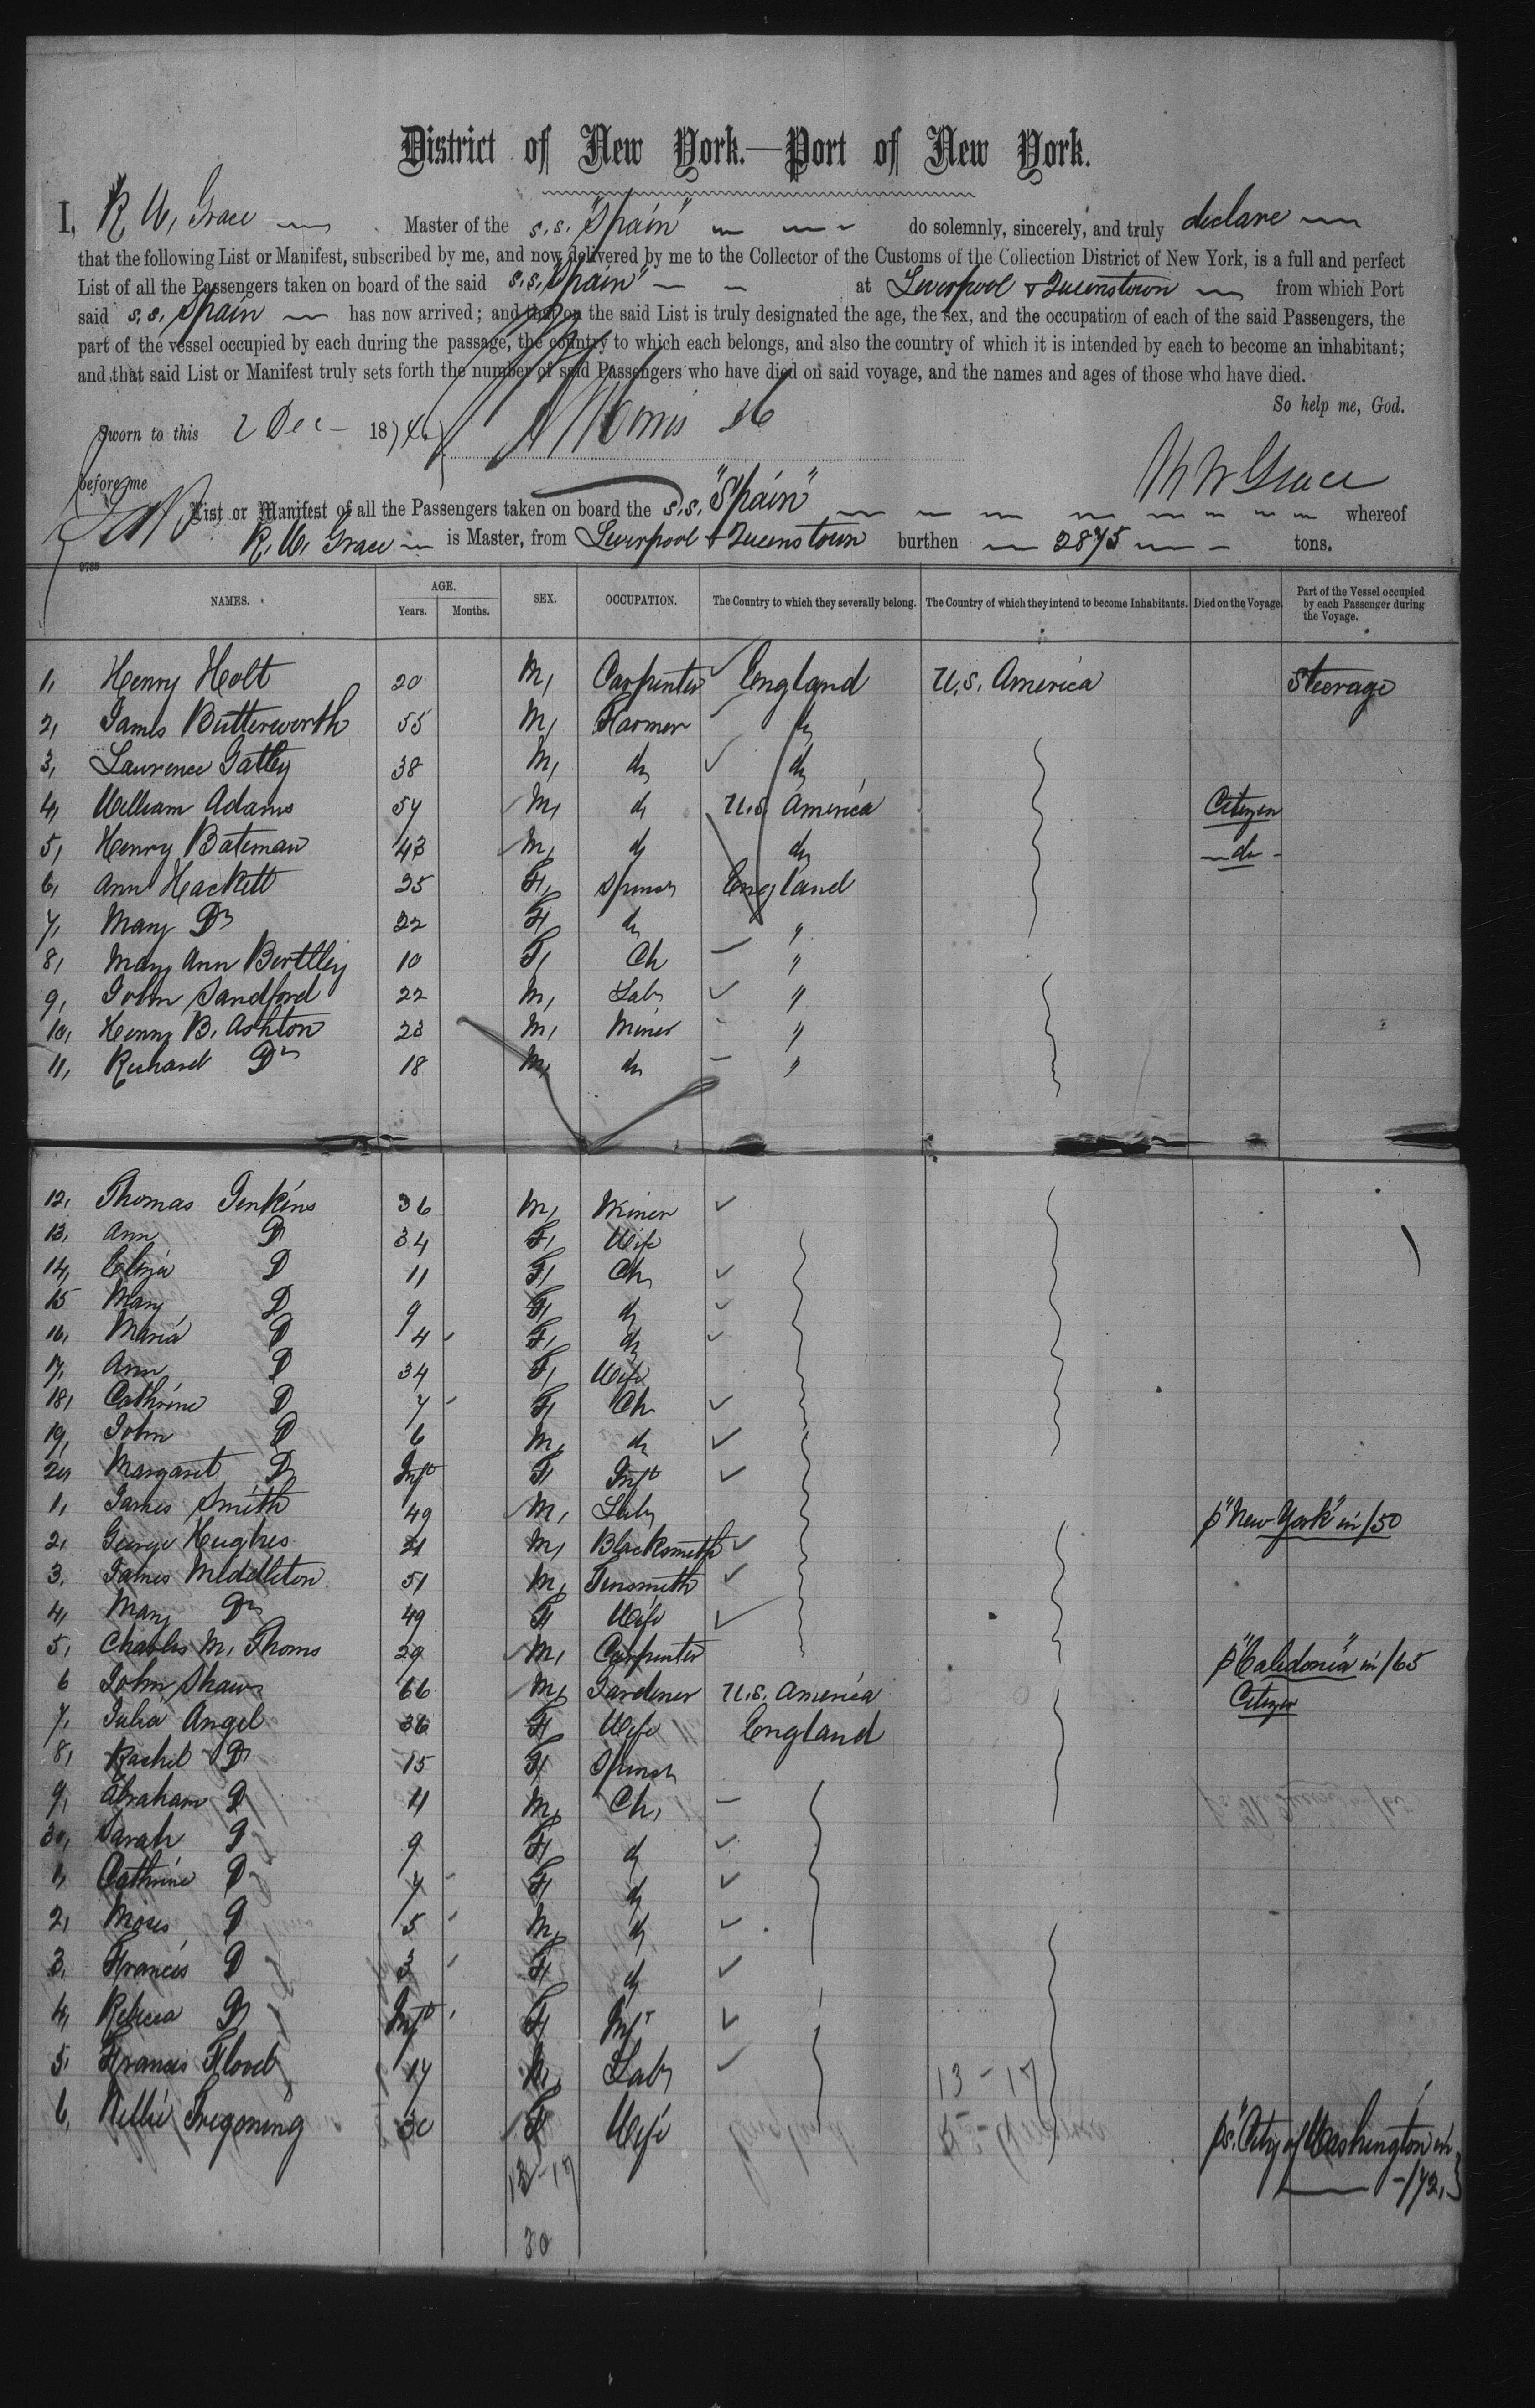 District of New York.—Port of New York.
I, R. W. Grace Master of the s.s. "Spain" do solemnly, sincerely, and truly declare
that the following List or Manifest, subscribed by me, and now delivered by me to the Collector of the Customs of the Collection District of New York, is a full and perfect
List of all the Passengers taken on board of the said s.s. "Spain" at Liverpool & Queenstown from which Port
said s.s. Spain has now arrived; and that on the said List is truly designated the age, the sex, and the occupation of each of the said Passengers, the
part of the vessel occupied by each during the passage, the country to which each belongs, and also the country of which it is intended by each to become an inhabitant;
and that said List or Manifest truly sets forth the number of said Passengers who have died on said voyage, and the names and ages of those who have died.
So help me, God.
Sworn to this 2 Dec 187
before me
R W Grace
List or Manifest of all the Passengers taken on board the s.s. "Spain" whereof
R. W. Grace is Master, from Liverpool & Queenstown burthen 2875 tons.
9788
NAMES. AGE. Years. Months. SEX. OCCUPATION. The Country to which they severally belong. The Country of which they intend to become Inhabitants. Died on the Voyage. Part of the Vessel occupied by each Passenger during the Voyage.
1, Henry Holt 20 M, Carpenter England U.S. America Steerage
2, James Butterworth 55 M, Farmer do
3, Lawrence Gatley 38 M, do do
4, William Adams 54 M, do U.S. America Citizen
5, Henry Bateman 43 M, do do do
6, Ann Hackett 25 F, Spinsr England
7, Mary Do 22 F, do "
8, Mary Ann Berttley 10 F, Ch "
9, John Sandford 22 M, Labr "
10, Henry B. Ashton 23 M, Miner "
11, Richard Do 18 M, do "
12, Thomas Jenkins 36 M, Miner
13, Ann D 34 F, Wife
14, Eliza D 11 F, Ch
15 Mary D 9 F, do
16, Maria D 4 F, do
17, Ann D 34 F, Wife
18, Cathrine D 7 F, Ch
19, John D 6 M, do
20, Margaret D Inft F, Inft
1, James Smith 49 M, Labr p "New York" in /50
2, George Hughes 21 M, Blacksmith
3, James Middleton 51 M, Tinsmith
4, Mary Do 49 F, Wife
5, Charles M. Thoms 29 M, Carpenter p "Caledonia" in /65
6 John Shaw 66 M, Gardener U.S. America Citizen
7, Julia Angel 36 F, Wife England
8, Rachel D 15 F, Spinsr
9, Abraham D 11 M, Ch,
30, Sarah D 9 F, do
1, Cathrine D 7 F, do
2, Moses D 5 M, do
3, Francis D 3 F, do
4, Rebecca D Inft F, Inft
5, Francis Flood 17 M, Labr 13-17
6, Nellie Tregoning 30 F, Wife ps. "City of Washington" in /72,
13-17
30